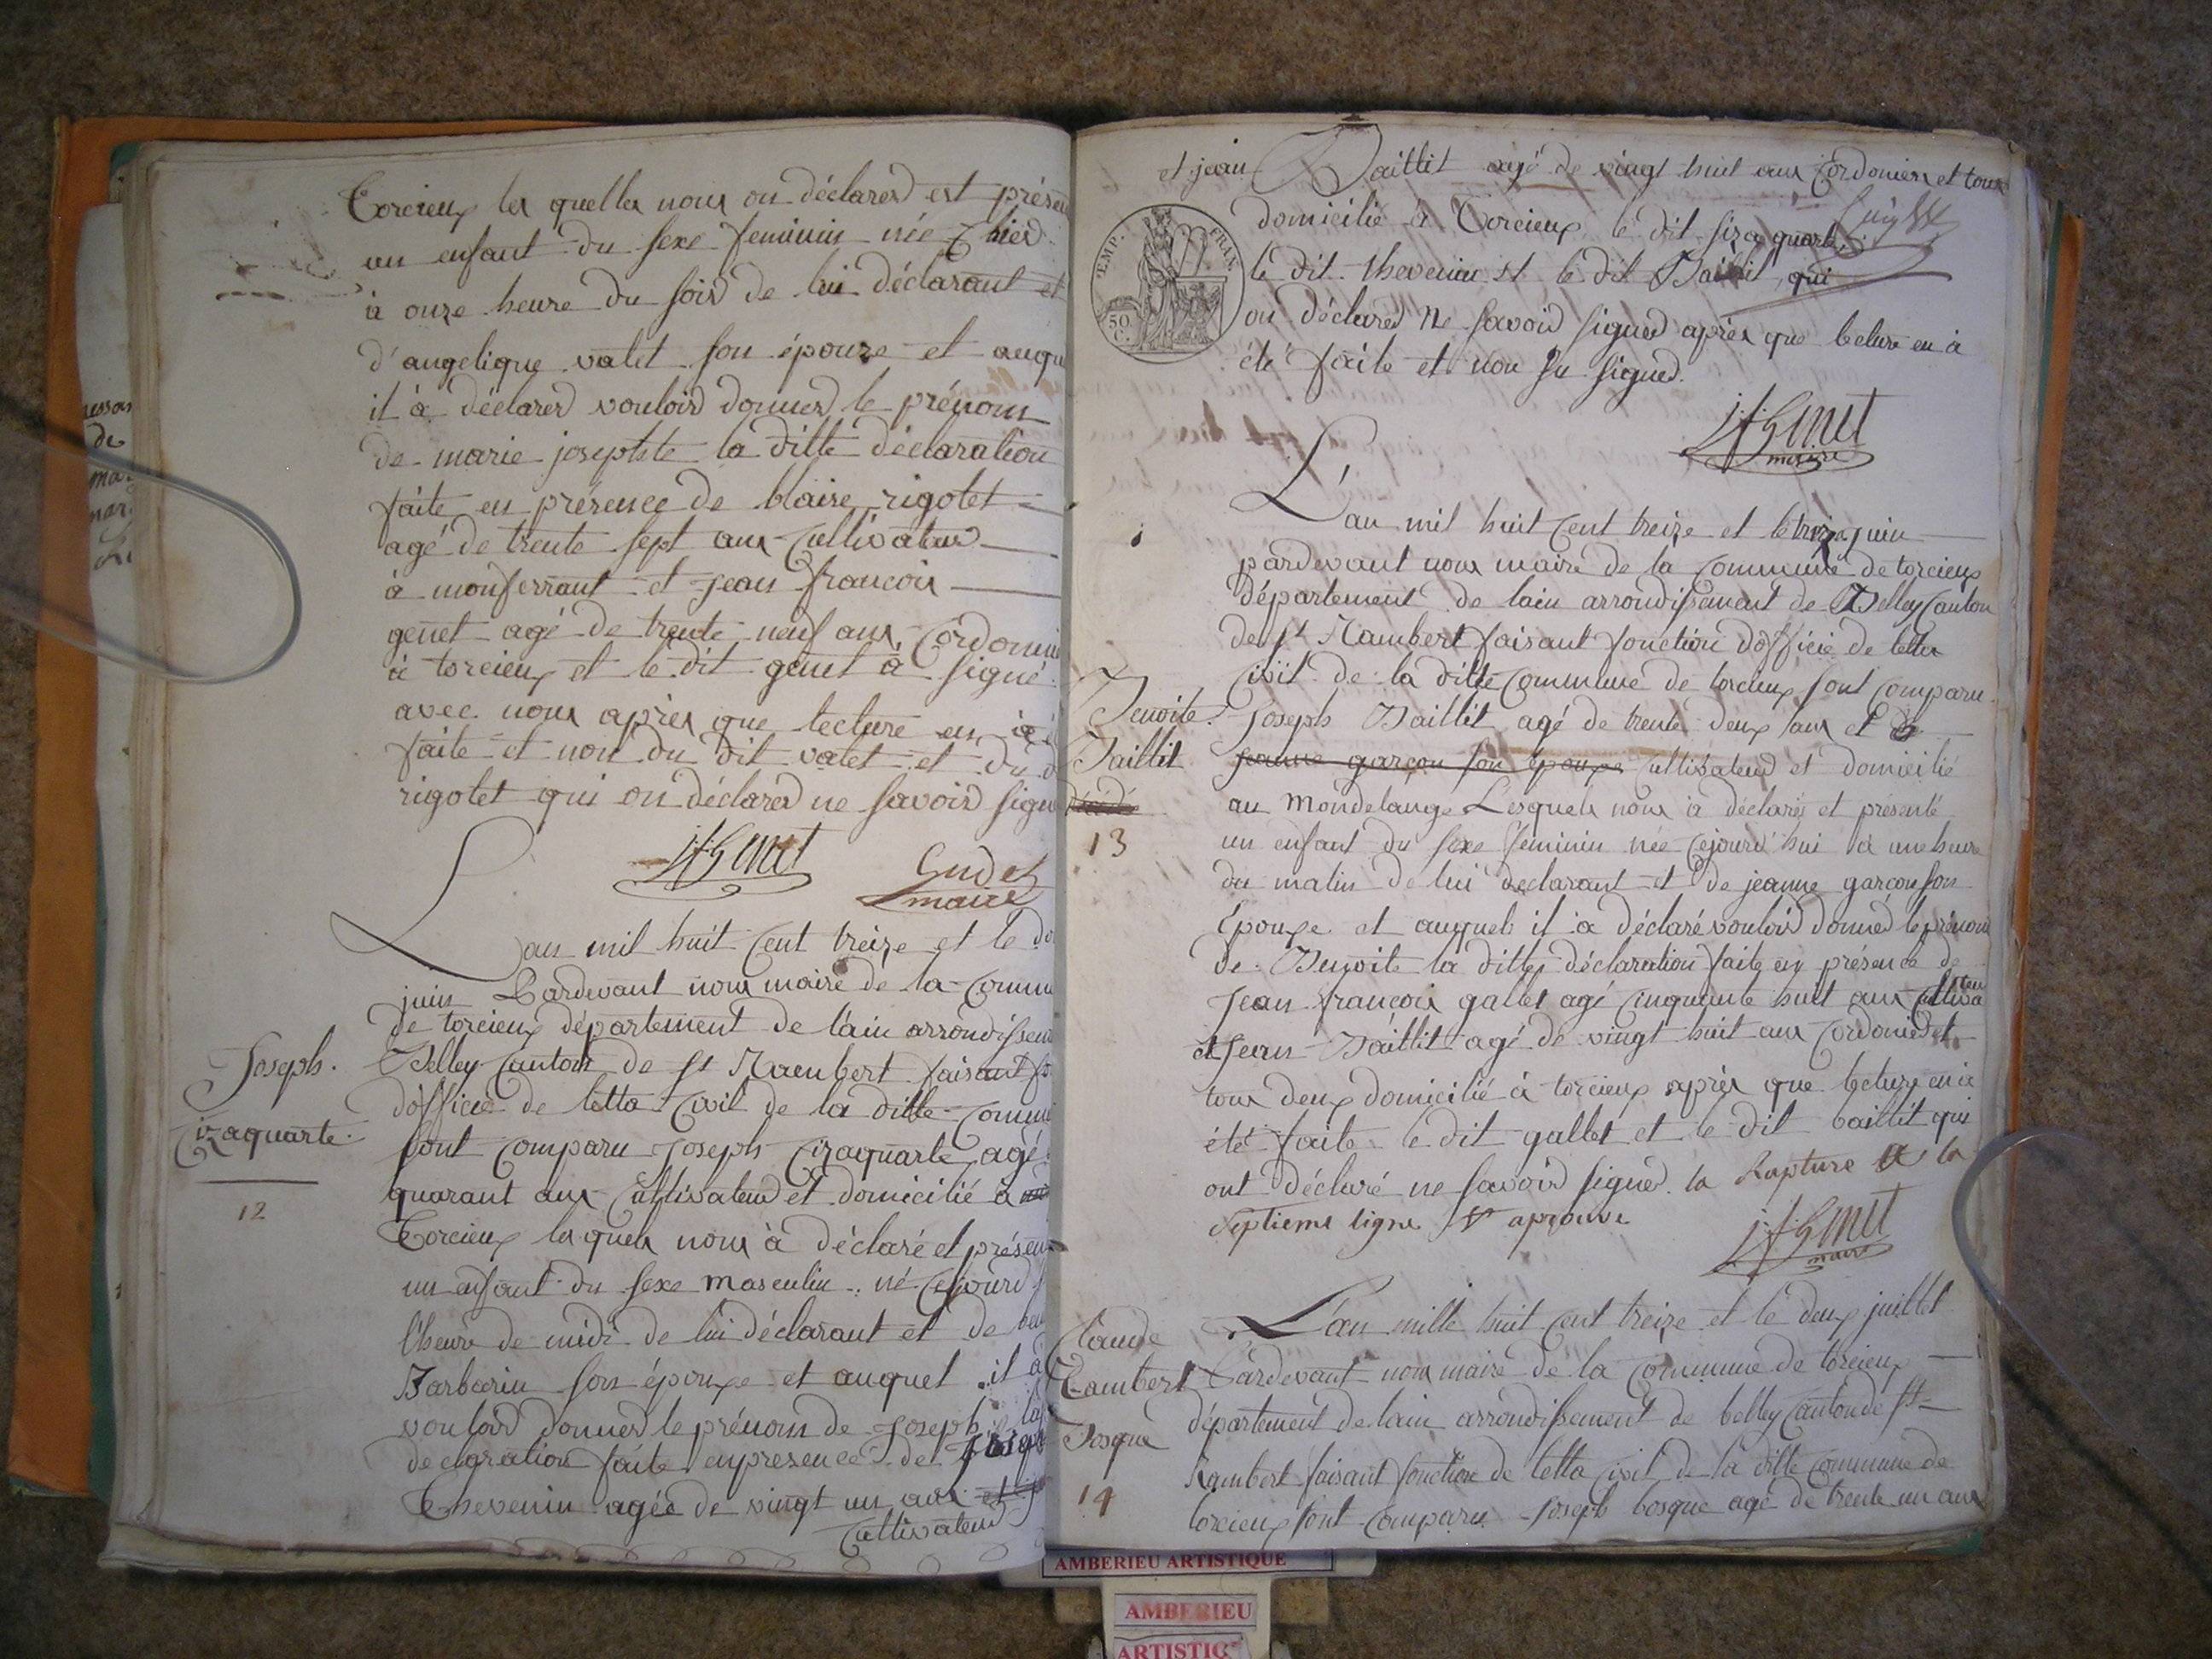 Torcieux les quelles nous on déclarer est présen
un enfant du sexe feminin née hier
à onze heure du soir de lui déclarant et
d'angelique valet son épouze et auqu
il à déclarer vouloir donner le prénom
de marie josephte la ditte déclaration
faite en présence de blaise rigotet
agé de trente sept ans Cultivateur
à monferrant et jean francois
genet agé de trente neuf ans, Cordonni
à torcieux et le dit genet à signé
avec nous après que lecture en à
faite et non du dit valet et du d
rigotet qui on déclarer ne savoir signe
jfGenet
maire
Lan mil huit Cent treize et le do
juin Pardevant nous maire de la Commu
de torcieux département de l'ain arrondissem
Belley Canton de st Rambert faisant fo
d'officier de letta Civil de la ditte Commu
sont Comparu Joseph Ciraquarte agé
quarant ans Cultivateur et domicilié à
Torcieux lesquels nous à déclaré et présen
un enfant du sexe masculin né Cejourd
l'heure de midi de lui déclarant et de
Barbarin son épouze et auquel il à
vouloir donner le prénom de Joseph la
declaration faite en presence de Joseph
Thevenin agée de vingt un ans et
Cultivateur
Joseph.
Ciraquarte.
12
et jean Baillit agé de vingt huit ans Cordonier et tous
domicilié à Torcieux le dit Siraquarte
le dit thevenin et le dit Baillit, qui
on déclarer ne savoir signer après que lecture en à
été faite et non su signer.
EMP. FRAN.
50
C.
jfGenet
maire
L'an mil huit Cent treize et le treize juin
pardevant nous maire de la Commune de torcieux
département de lain arrondissement de Belley Canton
de st Rambert faisant fonction d'officie de letta
Civil de la ditte Commune de torcieux sont Comparu
Joseph Baillit agé de trente deux ans et de
jeanne garçon son épouze Cultivateur et domicilié
au Mondelange Lesquels nous à déclarés et présenté
un enfant du sexe feminin née Cejourd'hui à une heure
du matin de lui declarant et de jeanne garçon son
Epouze et auquels il à déclaré vouloir donner le prénom
de Benoite la ditte déclaration faite en présence de
Jean francois gallet agé Cinquante huit ans Cultivateur
et Jean Baillit agé de vingt huit ans Cordonier et
tous deux domicilié à torcieux après que lecture en à
été faite le dit gallet et le dit baillit qui
ont déclaré ne savoir signer. la Rapture a la
Septieme ligne aprouve
jfGenet
maire
Benoite.
Baillit
13
L'an mille huit Cent treize et le deux juillet
Pardevant nous maire de la Commune de torcieux
département de lain arrondissement de belley Canton de st
Rambert faisant fonction de letta Civil de la ditte Commune de
torcieux sont Comparu Joseph bosque agé de trente un ans
Claude
Lambert
Bosque
14
AMBERIEU ARTISTIQUE
AMBERIEU
ARTISTIQ